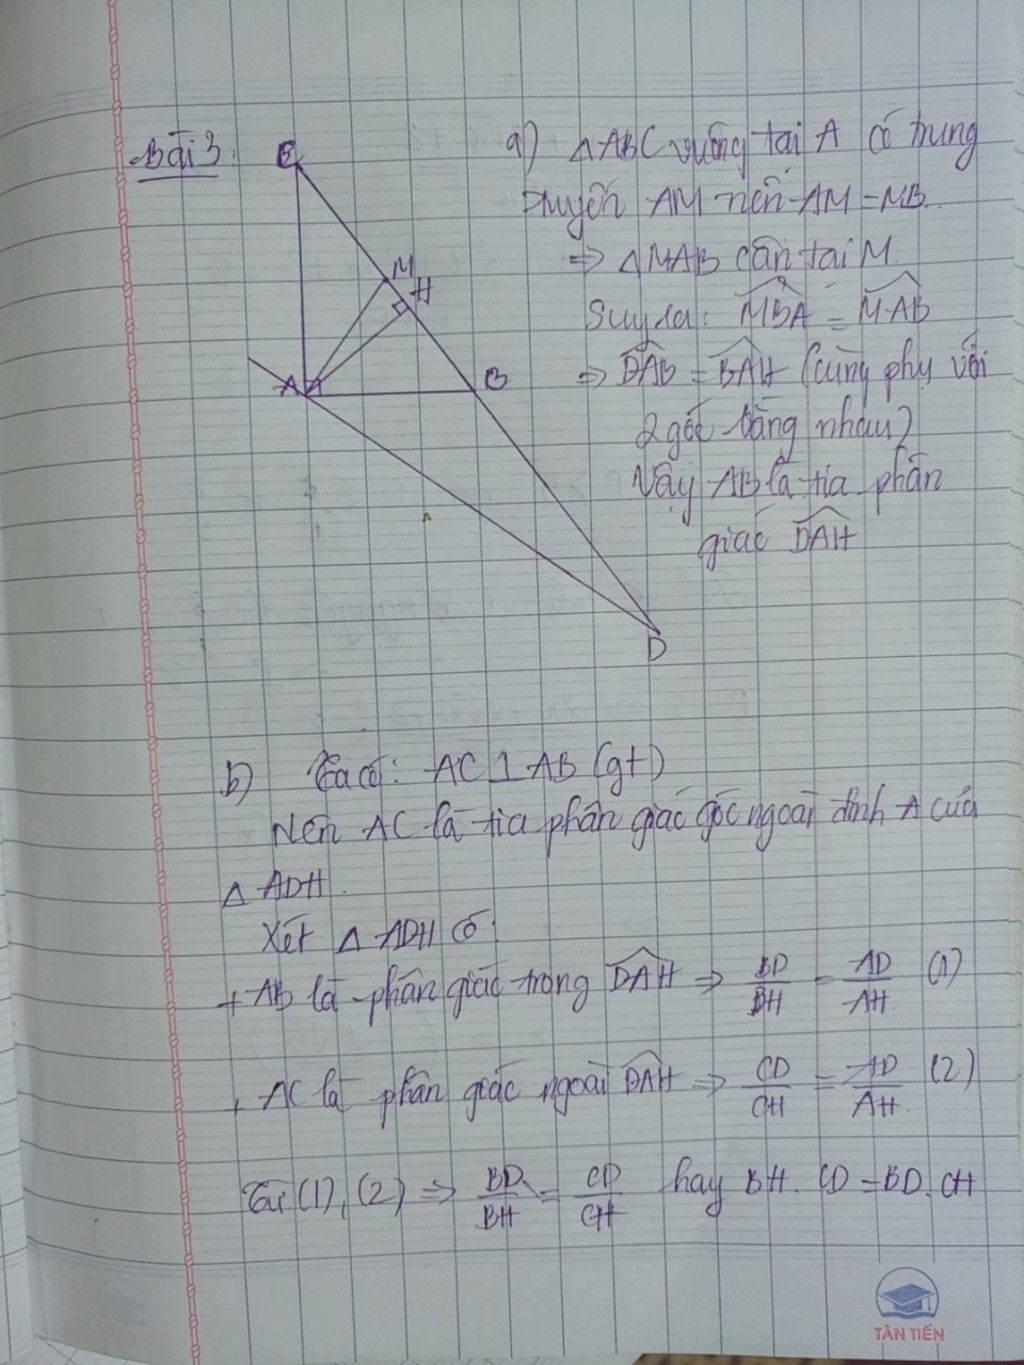 Bài 3:
C
M
H
A
B
D
a) △ABC vuông tại A có trung
tuyến AM nên AM = MB.
⇒ △MAB cân tại M.
Suy ra: MBA = MAB
⇒ DAB = BAH (cùng phụ với
2 góc bằng nhau)
Vậy AB là tia phân
giác DAH
b) Ta có: AC ⊥ AB (gt)
Nên AC là tia phân giác góc ngoài đỉnh A của
△ ADH.
Xét △ ADH có:
+ AB là phân giác trong DAH ⇒ BD/BH = AD/AH (1)
+ AC là phân giác ngoài DAH ⇒ CD/CH = AD/AH (2)
Từ (1), (2) ⇒ BD/BH = CD/CH hay BH. CD = BD. CH
TÂN TIẾN